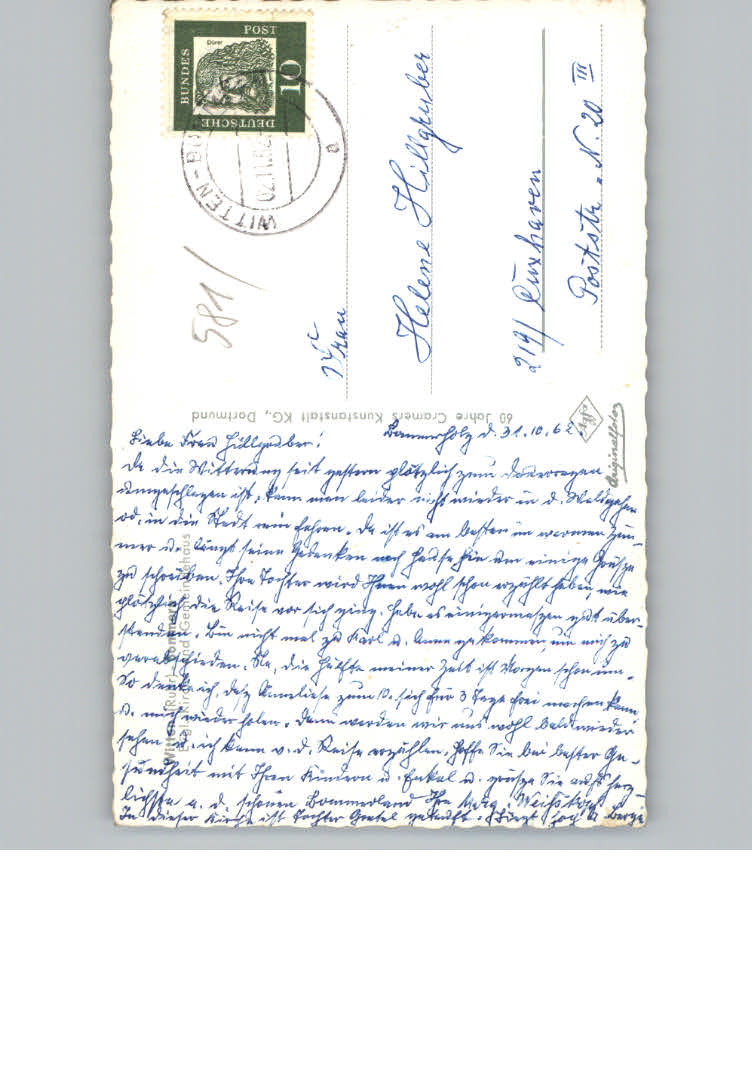 DEUTSCHE
BUNDES
POST
10
Dürer
WITTEN-BO
02.11.62
a
581/
Frau
Helene Hillgruber
219/ Cuxhaven
Poststr. N. 20 III
60 Jahre Cramers Kunstanstalt KG., Dortmund
Agfa
Originalfoto
Witten (Ruhr) Bommern
Evgl. Kirche und Gemeindehaus
Bommerholz d. 31.10.62.
Liebe Frau Hillgruber!
Da die Witterung seit gestern plötzlich zum Dauerregen
umgeschlagen ist, kann man leider nicht wieder in d. Wald gehen
od. in die Stadt rein fahren. Da ist es am besten im warmen Zim-
mer u. seinen Gedanken nach Hause hin um einige Grüße
zu schreiben. Ihre Tochter wird Ihnen wohl schon erzählt haben wie
plötzlich die Reise vor sich ging. Habe es einigermaßen gut über-
standen. Bin nicht mal zu Karl u. Anne gekommen, um mich zu
verabschieden. Na, die Hälfte meiner Zeit ist Morgen schon um.
So denke ich, daß Anneliese zum sich für 3 Tage frei machen kann
u. mich wieder holen. Dann werden wir uns wohl bald wieder
sehen u. ich kann v. d. Reise erzählen. Hoffe Sie bei bester Ge-
sundheit mit Ihren Kindern u. Enkel u. grüße Sie aufs herz-
lichste a. d. schönen Bommerland Ihre
In dieser Kirche ist Tochter Gretel getauft. Liegt hoch a. Berge